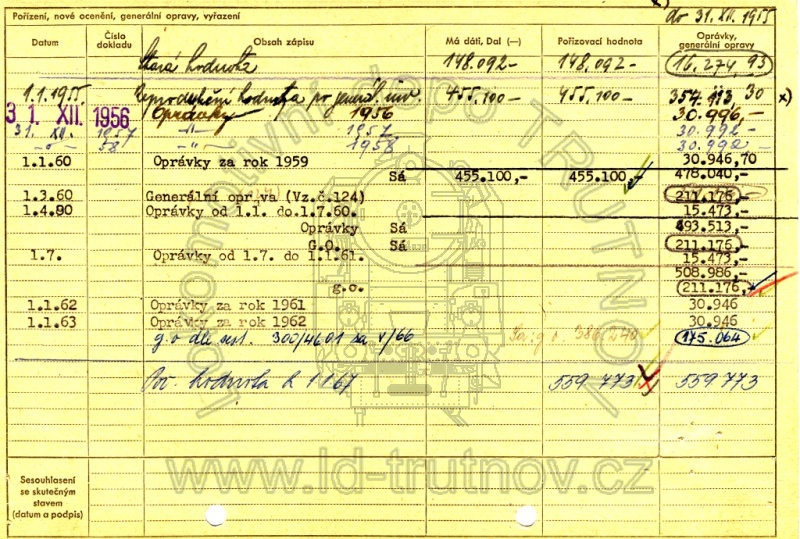 x)
do 31. XII. 1955
Pořízení, nové ocenění, generální opravy, vyřazení
Datum Číslo dokladu Obsah zápisu Má dáti, Dal (—) Pořizovací hodnota Oprávky, generální opravy
Stará hodnota 148.092- 148.092- 16.274,93
1.1.1955. Reprodukční hodnota po generál. inv. 455.100- 455.100- 354 113 30 x)
31. XII. 1956 Oprávky 1956 30.996,-
31. XII. 1957 -"- 1957 30.992-
-"- 58 -"- 1958 30.992-
1.1.60 Oprávky za rok 1959 30.946,70
Sá 455.100,- 455.100,- 478.040,-
1.3.60 Generální oprava (Vz.č.124) 211.176,-
1.4.90 Oprávky od 1.1. do.1.7.60. 15.473,-
Oprávky Sá 493.513,-
G.O. Sá 211.176,-
1.7. Oprávky od 1.7. do 1.1.61. 15.473,-
508.986,-
g.o. 211.176,-
1.1.62 Oprávky za rok 1961 30.946
1.1.63 Oprávky za rok 1962 30.946
g.o dle sest. 300/4601 za V/66 Sa: g o. 386 240 175.064
Poř. hodnota k 1.1.67 559 773 559 773
Sesouhlasení
se skutečným
stavem
(datum a podpis)
Lokomotivní depo TRUTNOV
www.ld-trutnov.cz